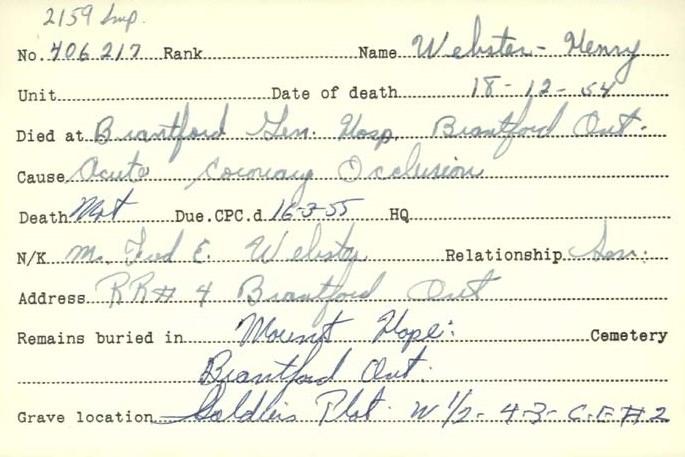 2159 Imp.
No. 406217 Rank Name Webster - Henry
Unit Date of death 18-12-54
Died at Brantford Gen. Hosp. Brantford Ont.
Cause Acute Coronary Occlusion
Death Not Due. CPC.d 16-3-55 HQ
N/K Mr. Fred E. Webster Relationship Son:
Address RR# 4 Brantford Ont
Remains buried in Mount Hope: Cemetery
Brantford Ont.
Grave location Soldiers Plot. W 1/2 - 43 - C.E # 2